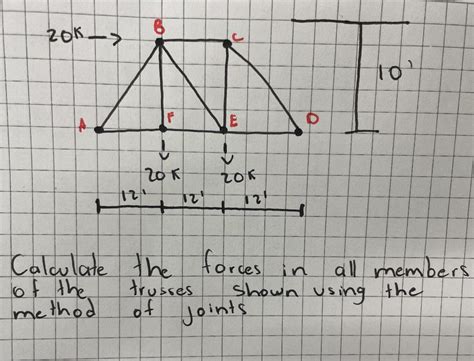 B
20K → C
10'
A F E D
20K 20K
12' 12' 12'
Calculate the forces in all members
of the trusses shown using the
method of joints